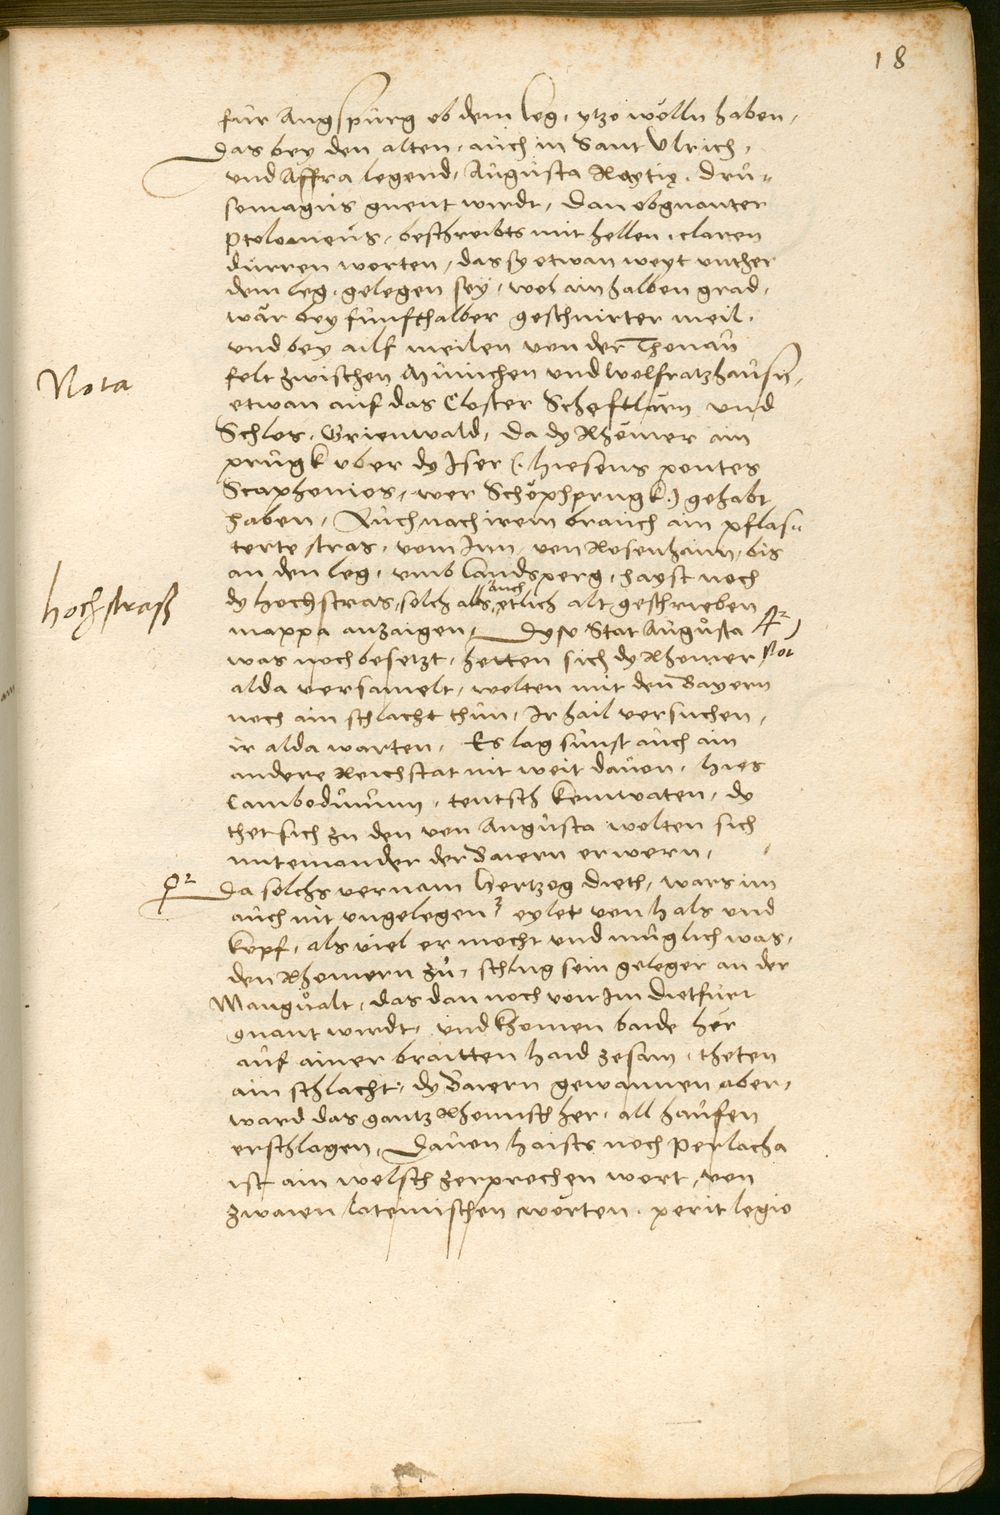 18
für Augspurg ob dem Leg, ytzo wölln haben,
Das bey den alten, auch in Sant Ulrich,
und Affra legend, Augusta Raetię. Dru-
somagus gnent wirdt, Dan obgnanter
Ptolomeus, beschreibts mit hellen, claren
dürren worten, das sy etwan weyt unther
dem leg, gelegen sey, wol ain halben grad,
wär bey fünfthalber geschnirter meil,
und bey ailf meilen von der Thonau
Nota
felt zwischen München und Wolfratzhausn,
etwan auf das Closter Scheftlärn und
Schlos, Grienwald, da dy Rhömer ain
prugk uber dy Iser (: hiesens pontes
Scaphonios, wer Schöphprugk:) gehabt
haben, Auch nach irem brauch ain pflas-
terte stras, vom Inn, von Rosenhaim, bis
an den leg, umb Landsperg, hayst noch
Hochstraß
dy Hochstras, solch als auch etlich alt geschrieben
mappa anzaigen, Dyse Stat Augusta
Not
was noch besetzt, hetten sich dy Rhomer
alda versamelt, wolten mit den Bayern
noch ain schlacht thun, Ir hail versuchen,
ir alda warten, Es lag sunst auch ain
andere Reichstat nit weit davon, hies
Cambodunum, teutsch Kemnaten, dy
thet sich zu den von Augusta wolten sich
miteinander der Baiern erwern,
Da solchs vernam Hertzog Dieth, wars im
auch nit ungelegen, eylet von hals und
kopf, als viel er mocht und muglich was,
den Rhomern zu, schlug sein geleger an der
Mangualt, das dan noch von Im Dietfurt
gnant wirdt, und khomen baide her
auf ainer braitten haid zesam, theten
ain schlacht, dy Baiern gewannen aber,
ward das gantz Rhomisch her, all haufen
erschlagen, Davon haists noch Perlacha
ist ain welsch zerprochen wort, von
zwaien lateinischen worten, perit legio